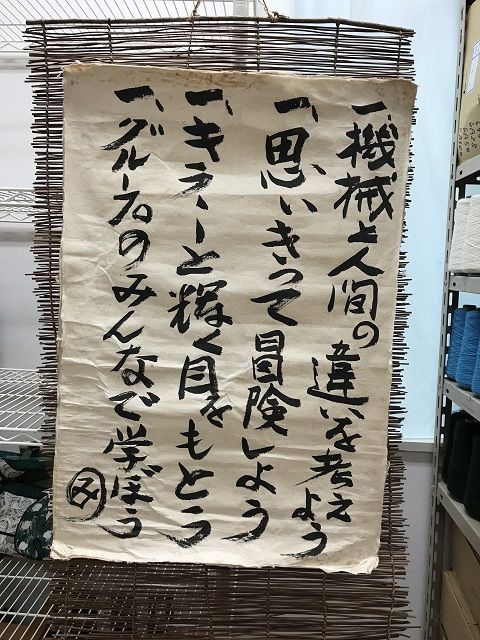 一、機械と人間の違いを考えよう
一、思いきって冒険しよう
一、キラーと輝く目をもとう
一、グループのみんなで学ぼう
み